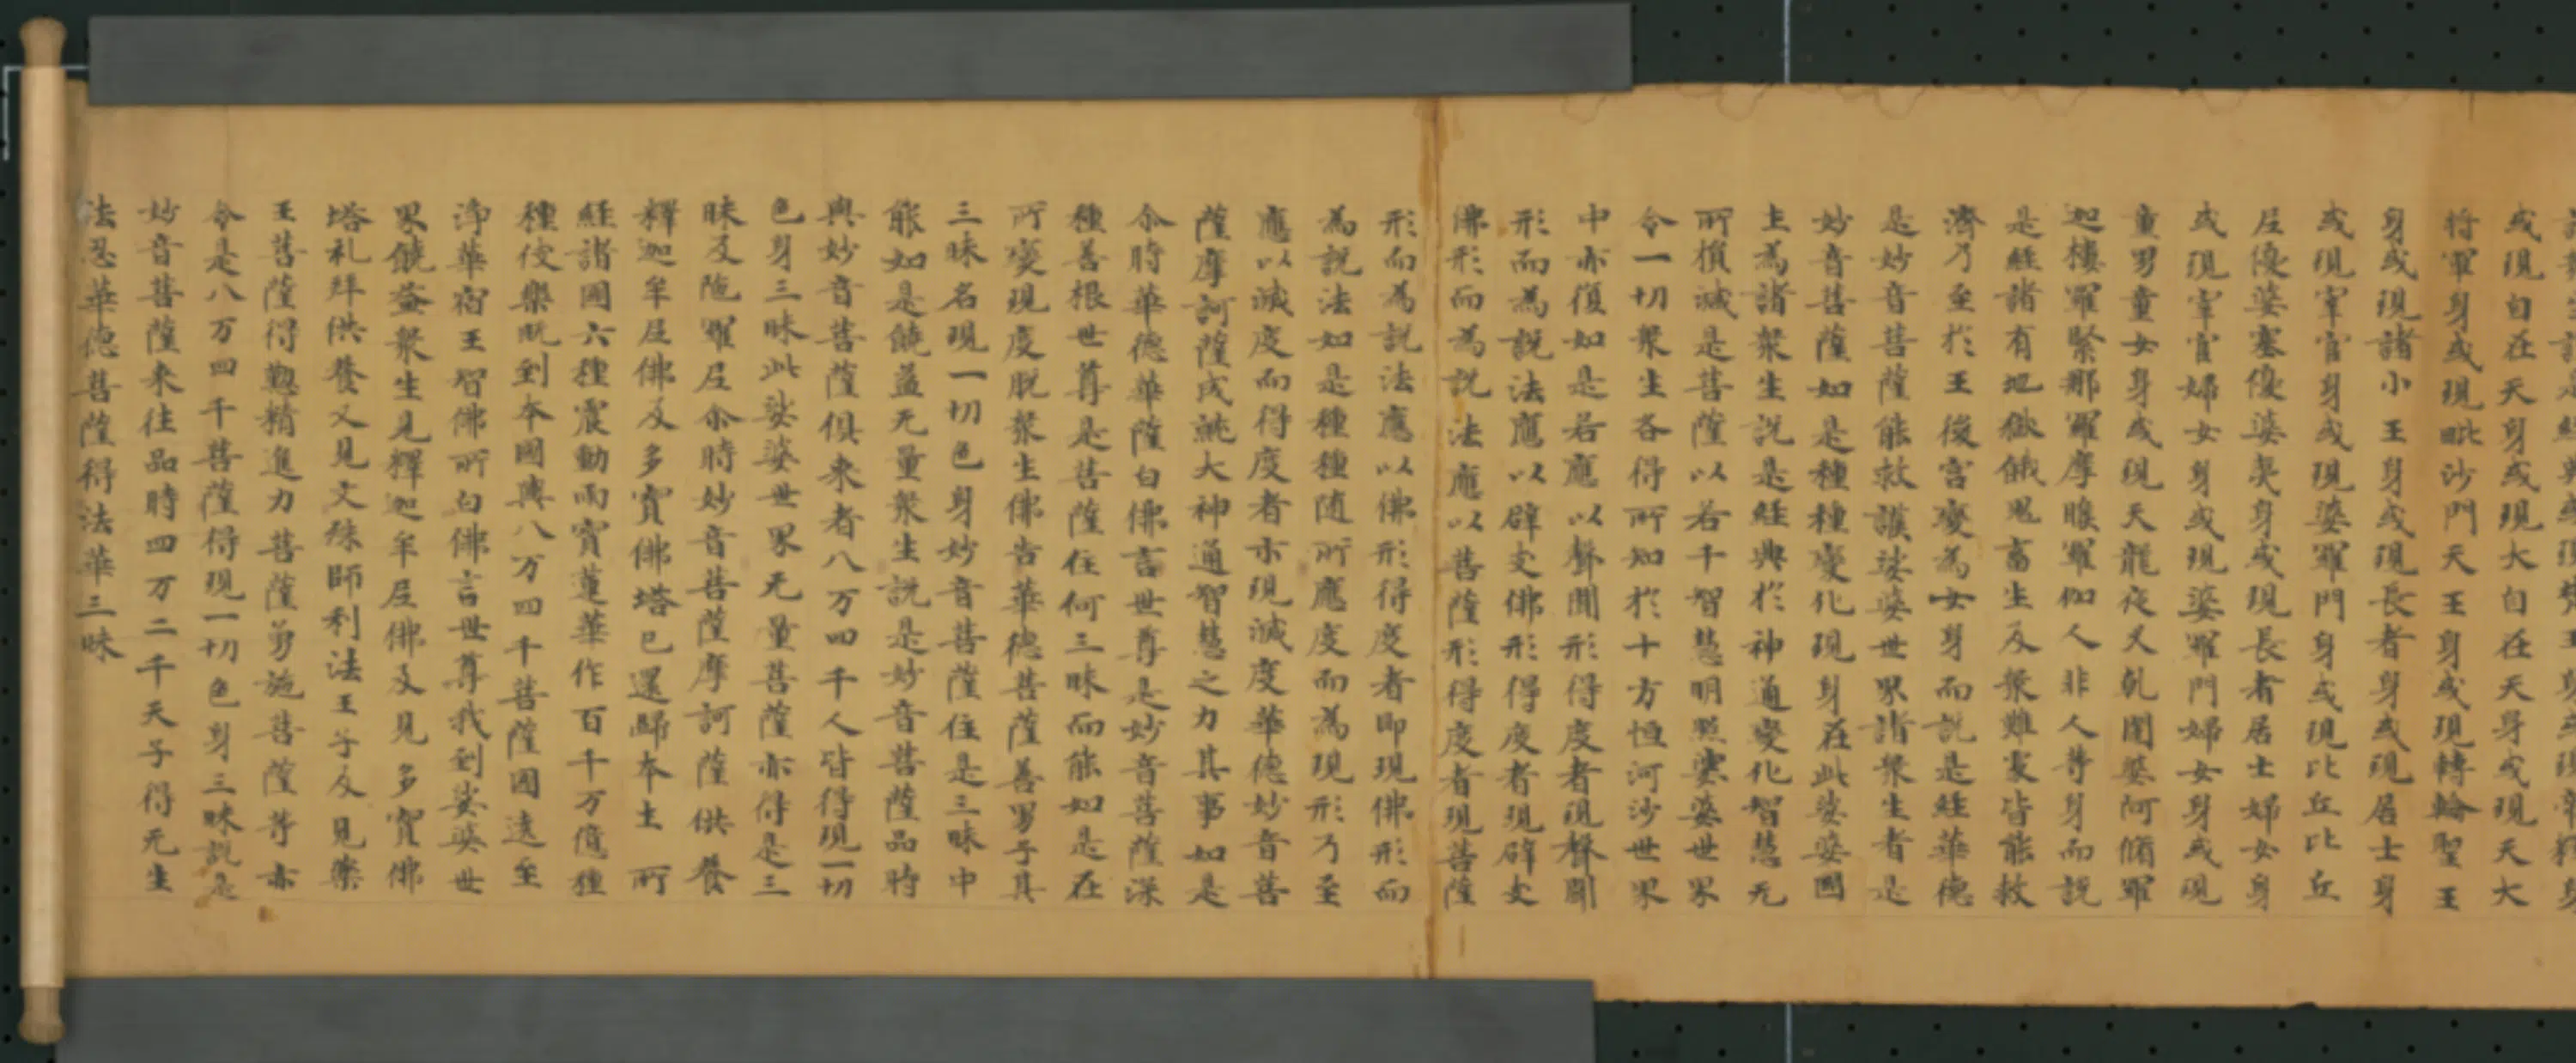 或現自在天身或現大自在天身或現天大
将軍身或現毗沙門天王身或現轉輪聖王
身或現諸小王身或現長者身或現居士身
或現宰官身或現婆羅門身或現比丘比丘
尼優婆塞優婆夷身或現長者居士婦女身
或現宰官婦女身或現婆羅門婦女身或現
童男童女身或現天龍夜叉乹闥婆阿脩羅
迦樓羅緊那羅摩睺羅伽人非人等身而説
是經諸有地獄餓鬼畜生及衆難處皆能救
濟乃至於王後宮變為女身而説是經華德
是妙音菩薩能救護娑婆世界諸衆生者是
妙音菩薩如是種種變化現身在此娑婆國
土為諸衆生説是經典於神通變化智慧无
所損減是菩薩以若干智慧明照娑婆世界
令一切衆生各得所知於十方恒河沙世界
中亦復如是若應以聲聞形得度者現聲聞
形而為説法應以辟支佛形得度者現辟支
佛形而為説法應以菩薩形得度者現菩薩
形而為説法應以佛形得度者即現佛形而
為説法如是種種随所應度而為現形乃至
應以滅度而得度者亦現滅度華德妙音菩
薩摩訶薩成就大神通智慧之力其事如是
尒時華德菩薩白佛言世尊是妙音菩薩深
種善根世尊是菩薩住何三昧而能如是在
所變現度脱衆生佛告華德菩薩善男子其
三昧名現一切色身妙音菩薩住是三昧中
能如是饒益无量衆生説是妙音菩薩品時
與妙音菩薩俱来者八万四千人皆得現一切
色身三昧此娑婆世界无量菩薩亦得是三
昧及陁羅尼尒時妙音菩薩摩訶薩供養
釋迦牟尼佛及多寳佛塔已還歸本土 所
經諸國六種震動雨寳蓮華作百千万億種
種伎樂既到本國與八万四千菩薩圍遶至
淨華宿王智佛所白佛言世尊我到娑婆世
界饒益衆生見釋迦牟尼佛及見多寳佛
塔礼拜供養又見文殊師利法王子及見藥
王菩薩得懃精進力菩薩勇施菩薩等亦
令是八万四千菩薩得現一切色身三昧説是
妙音菩薩来往品時四万二千天子得无生
法忍華德菩薩得法華三昧